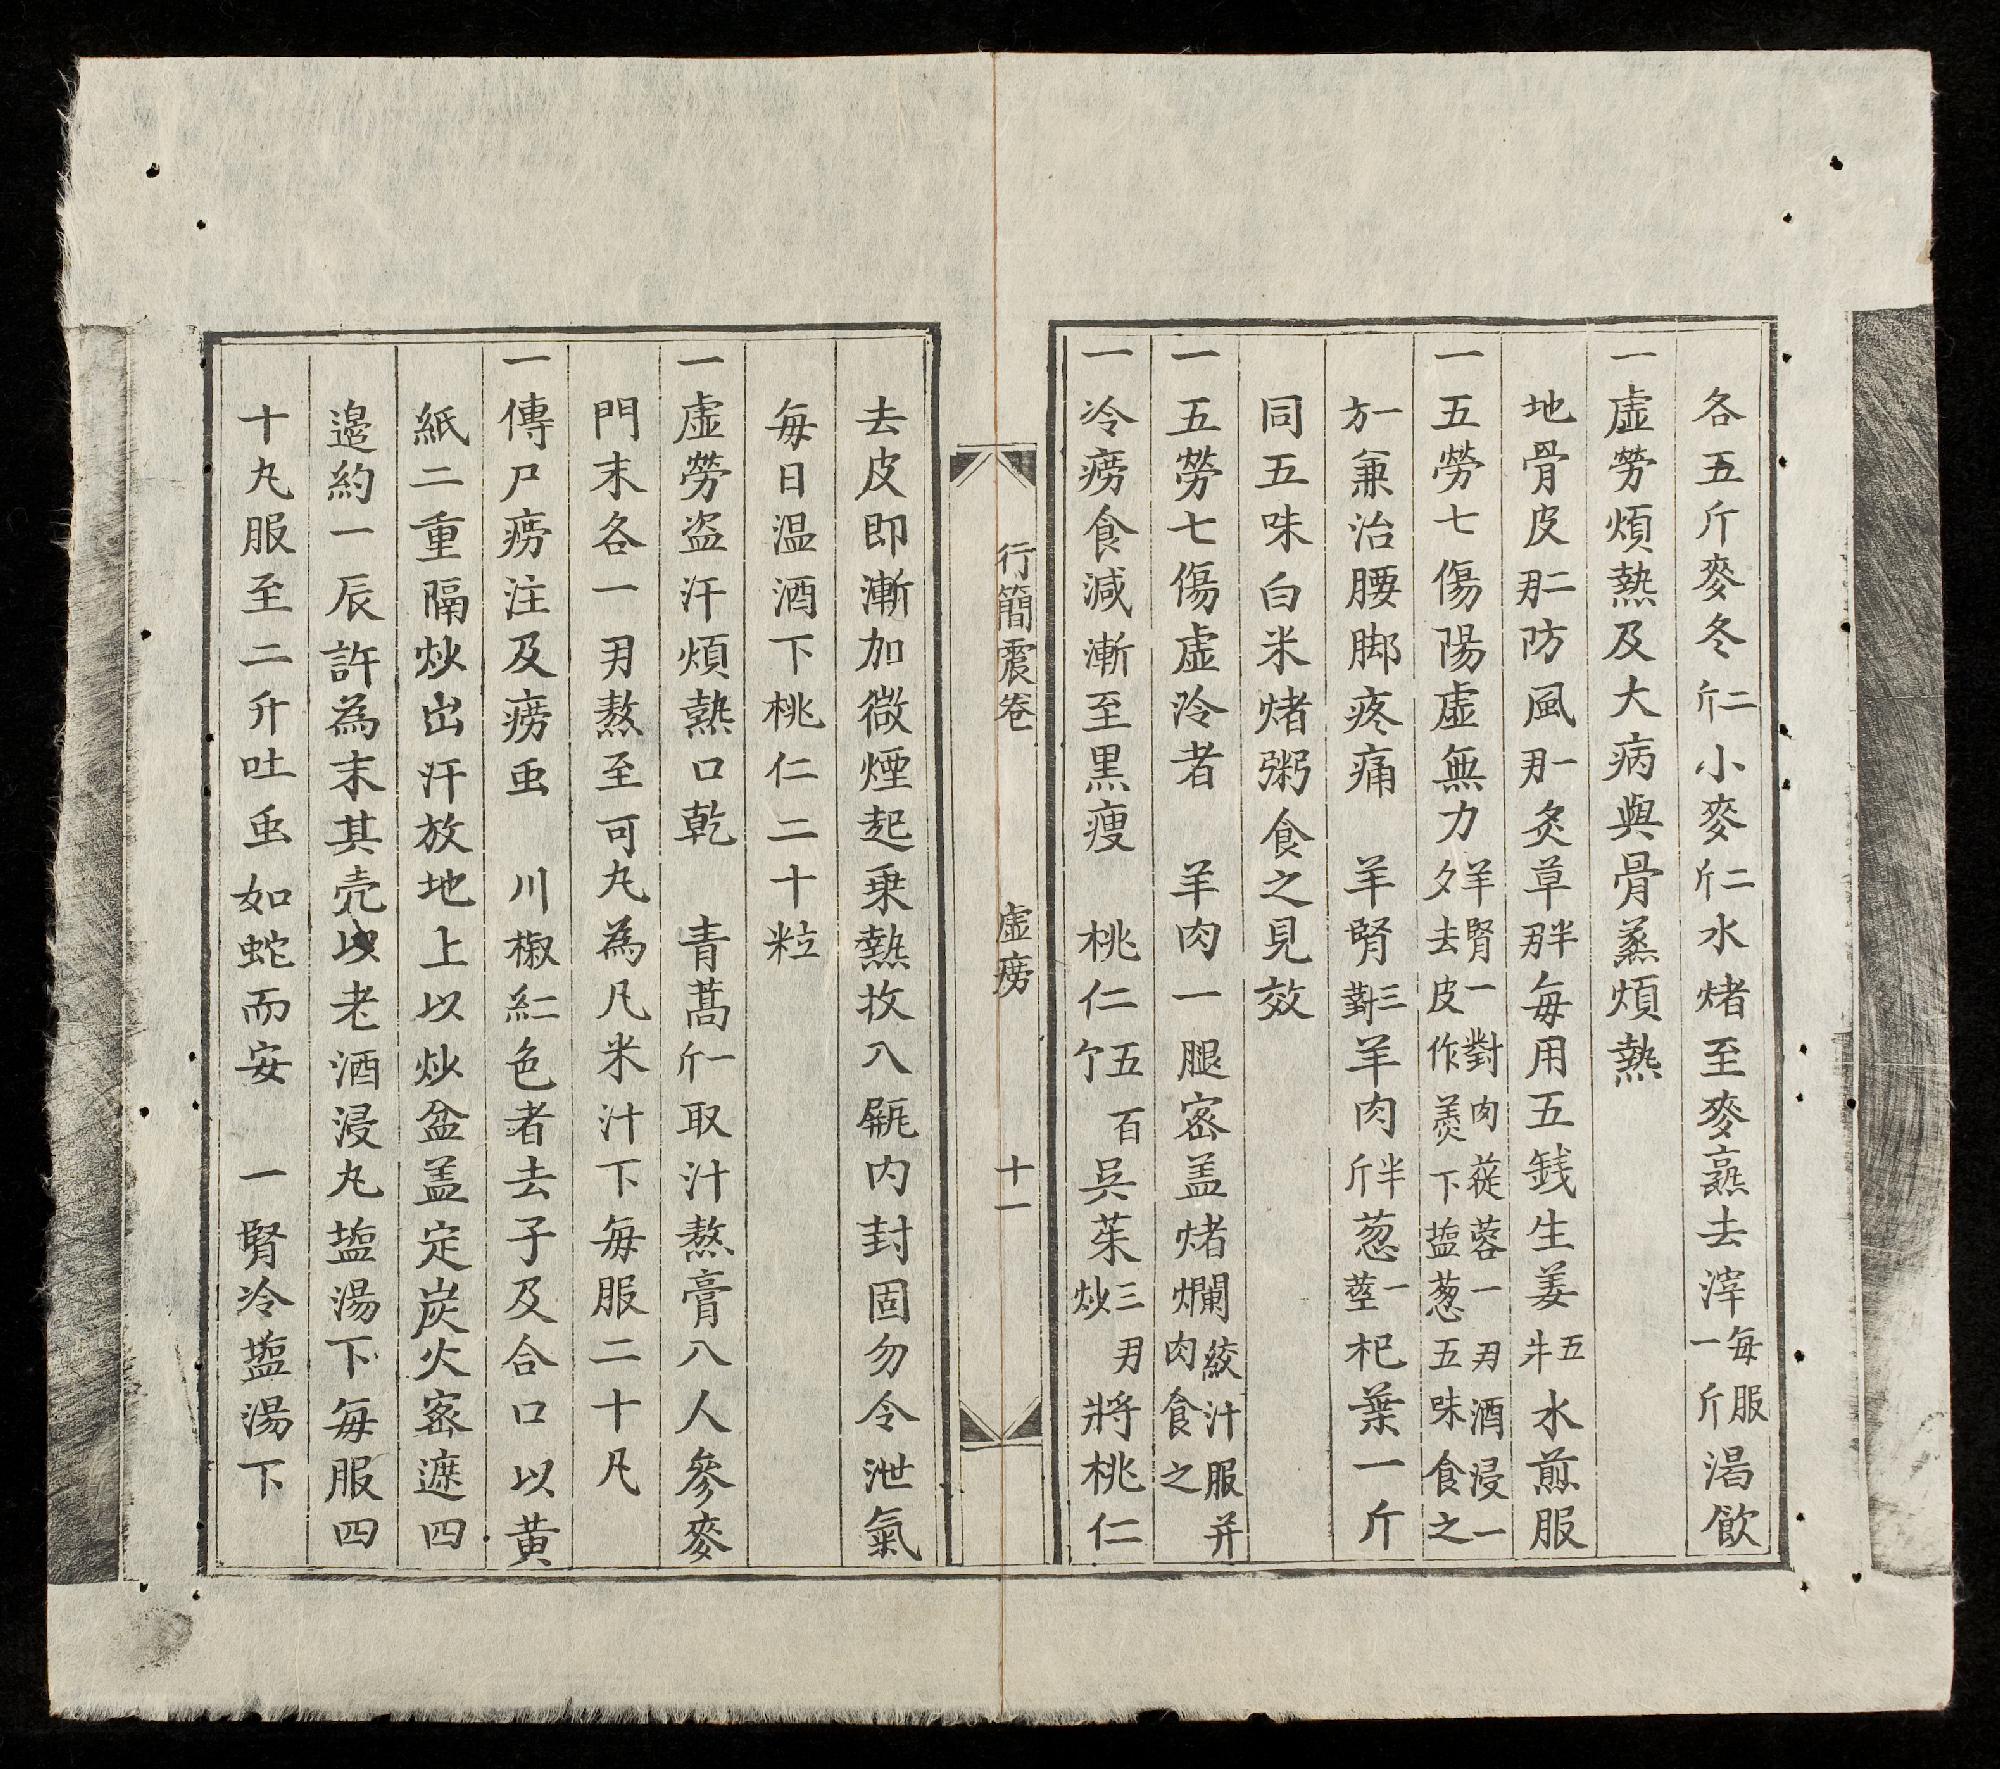 各五斤麥冬二斤小麥二斤水煮至麥熟去滓每服一斤渴飲
一虛勞煩熱及大病與骨蒸煩熱
地骨皮二刄防風一刄炙草半刄每用五錢生姜五片水煎服
一五勞七傷陽虛無力羊腎一對肉蓯蓉一刄酒浸一夕去皮作羹下塩葱五味食之
一方兼治腰脚疼痛　羊腎三對羊肉半斤葱一莖杞葉一斤
同五味白米煮粥食之見效
一五勞七傷虛冷者　羊肉一腿密盖煮爛絞汁服并肉食之
一冷癆食減漸至黑瘦　桃仁五百个吳茱三刄炒將桃仁
行簡震卷　虛癆　十一
去皮即漸加微煙起乗熱收入瓶内封固勿令泄氣
每日温酒下桃仁二十粒
一虛勞盗汗煩熱口乾　青蒿一斤取汁熬膏入人參麥
門末各一刄熬至可丸為凡米汁下每服二十凡
一傳尸癆注及癆虫　川椒紅色者去子及合口以黄
紙二重隔炒出汗放地上以炒盆盖定炭火密遮四
邉約一辰許為末其壳以老酒浸丸塩湯下每服四
十丸服至二斤吐虫如蛇而安　一腎冷塩湯下